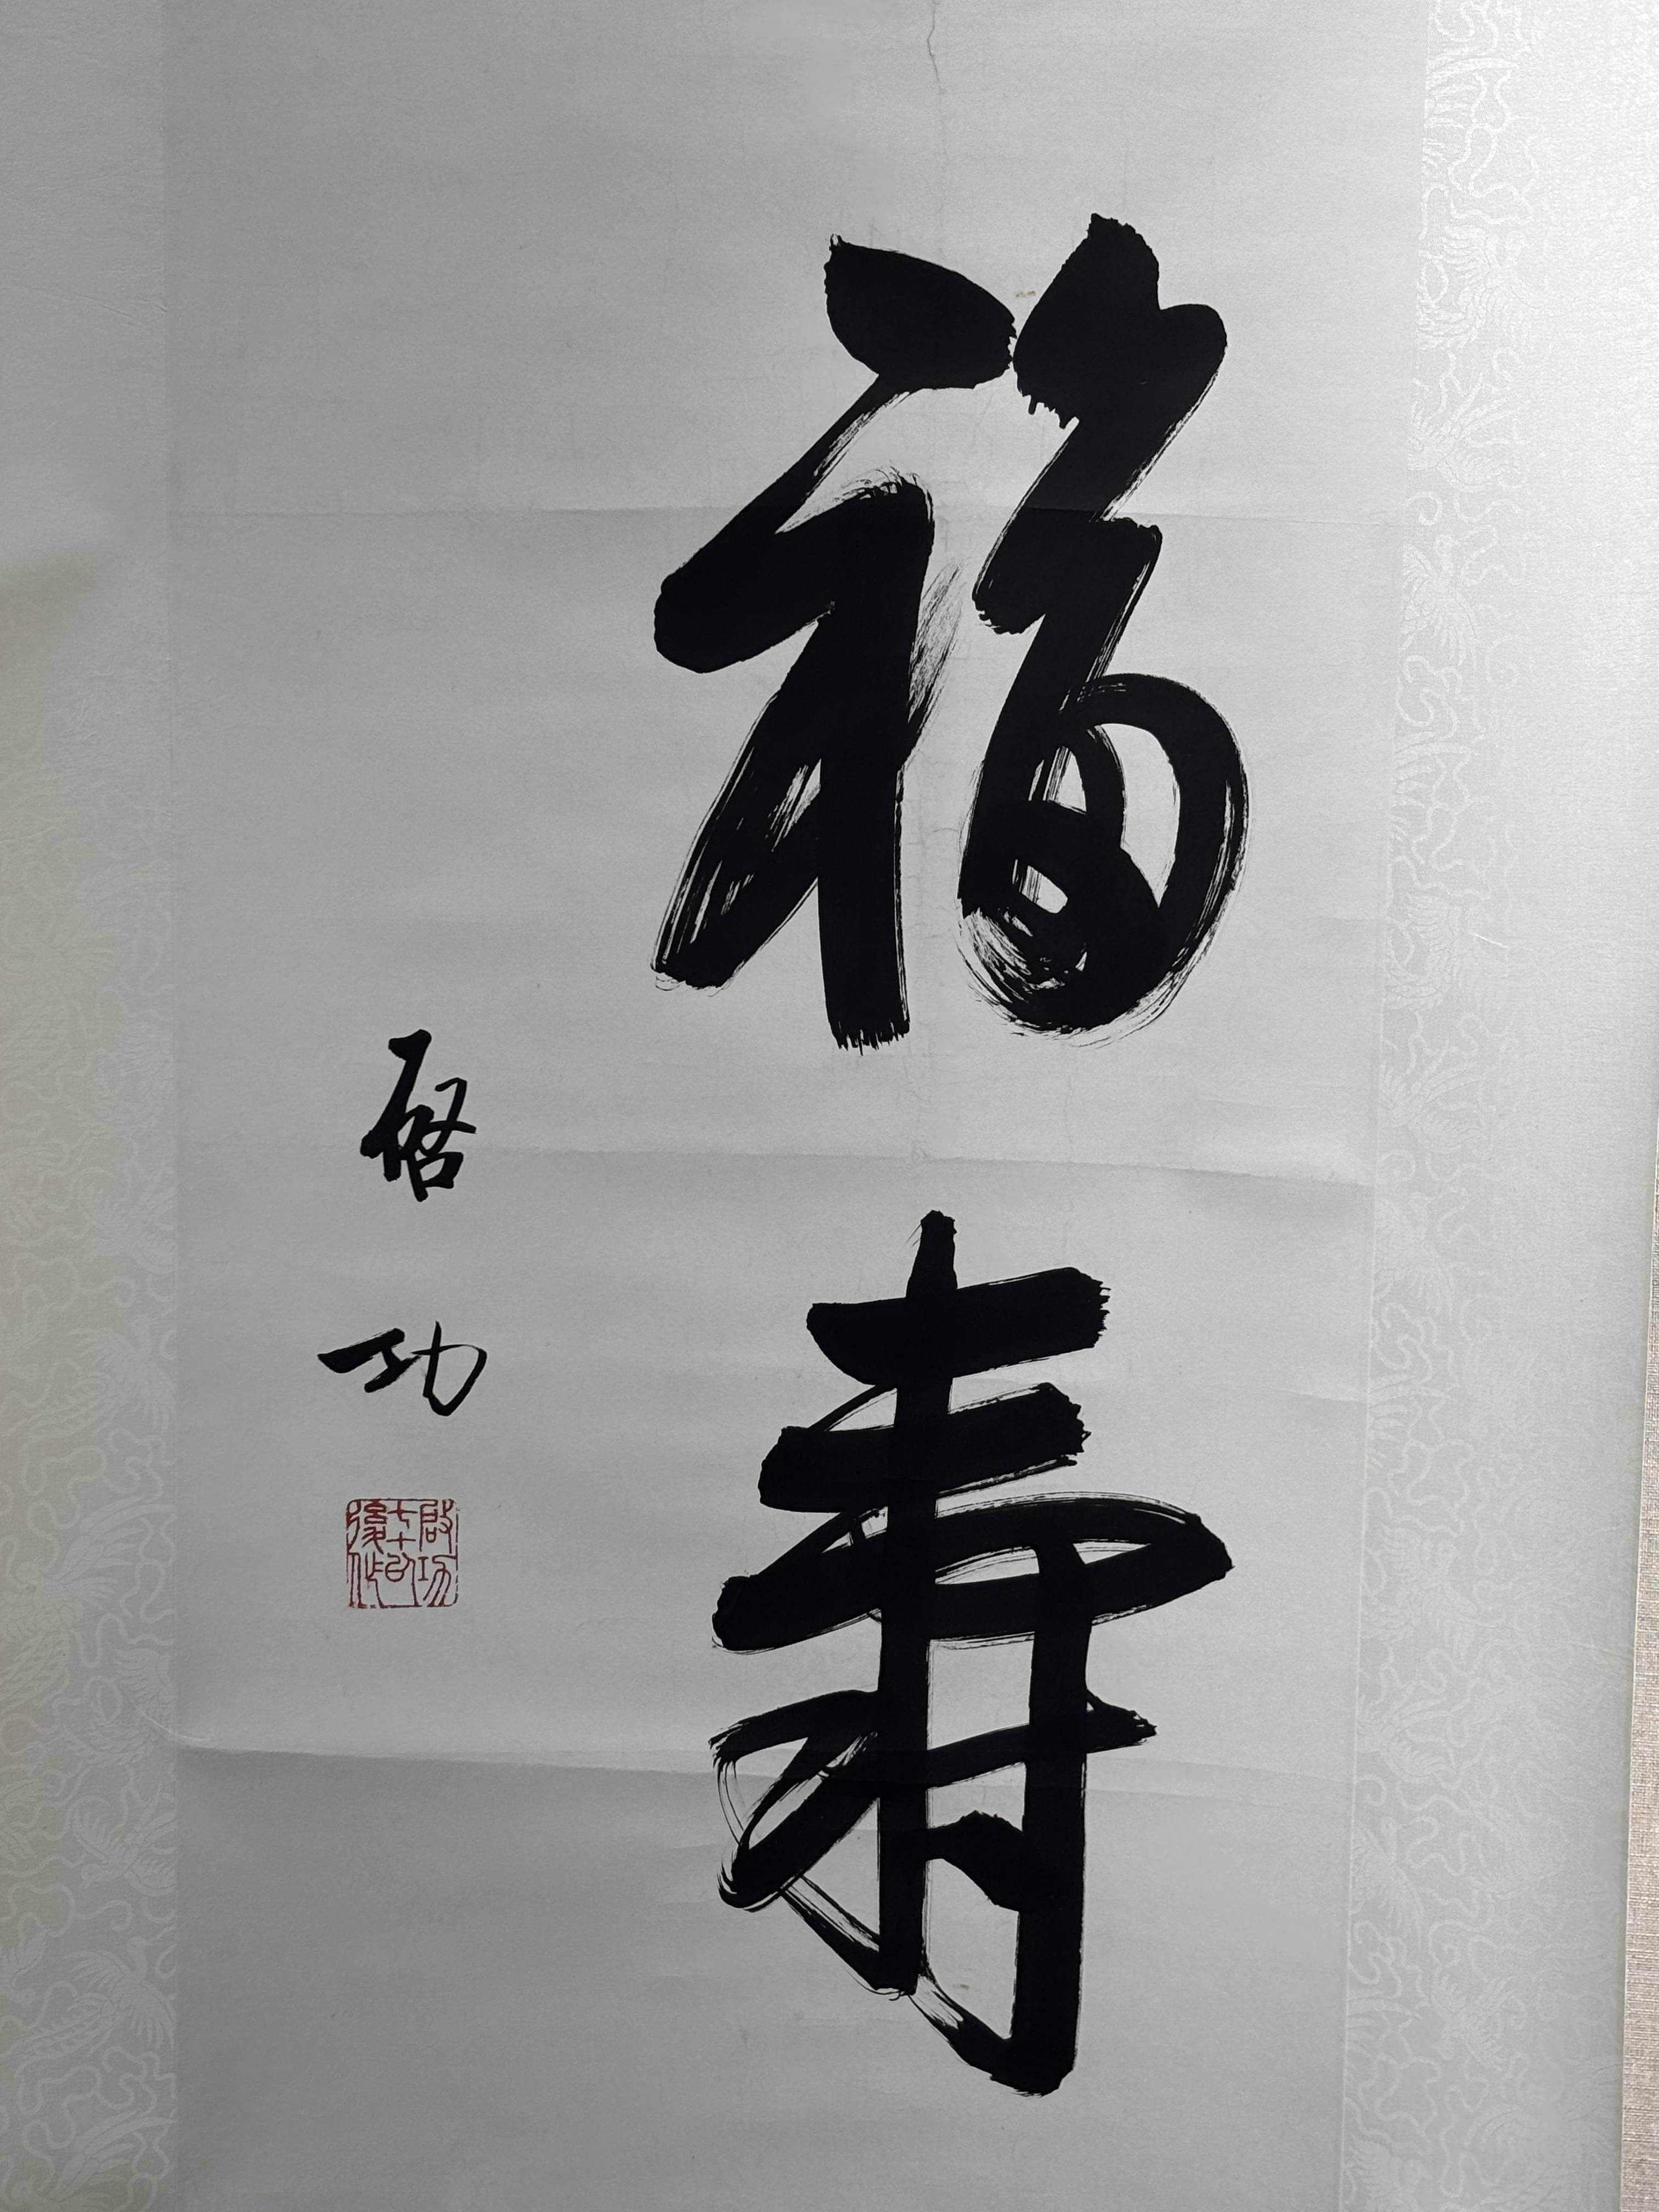 福寿
启功
启功七十以后作